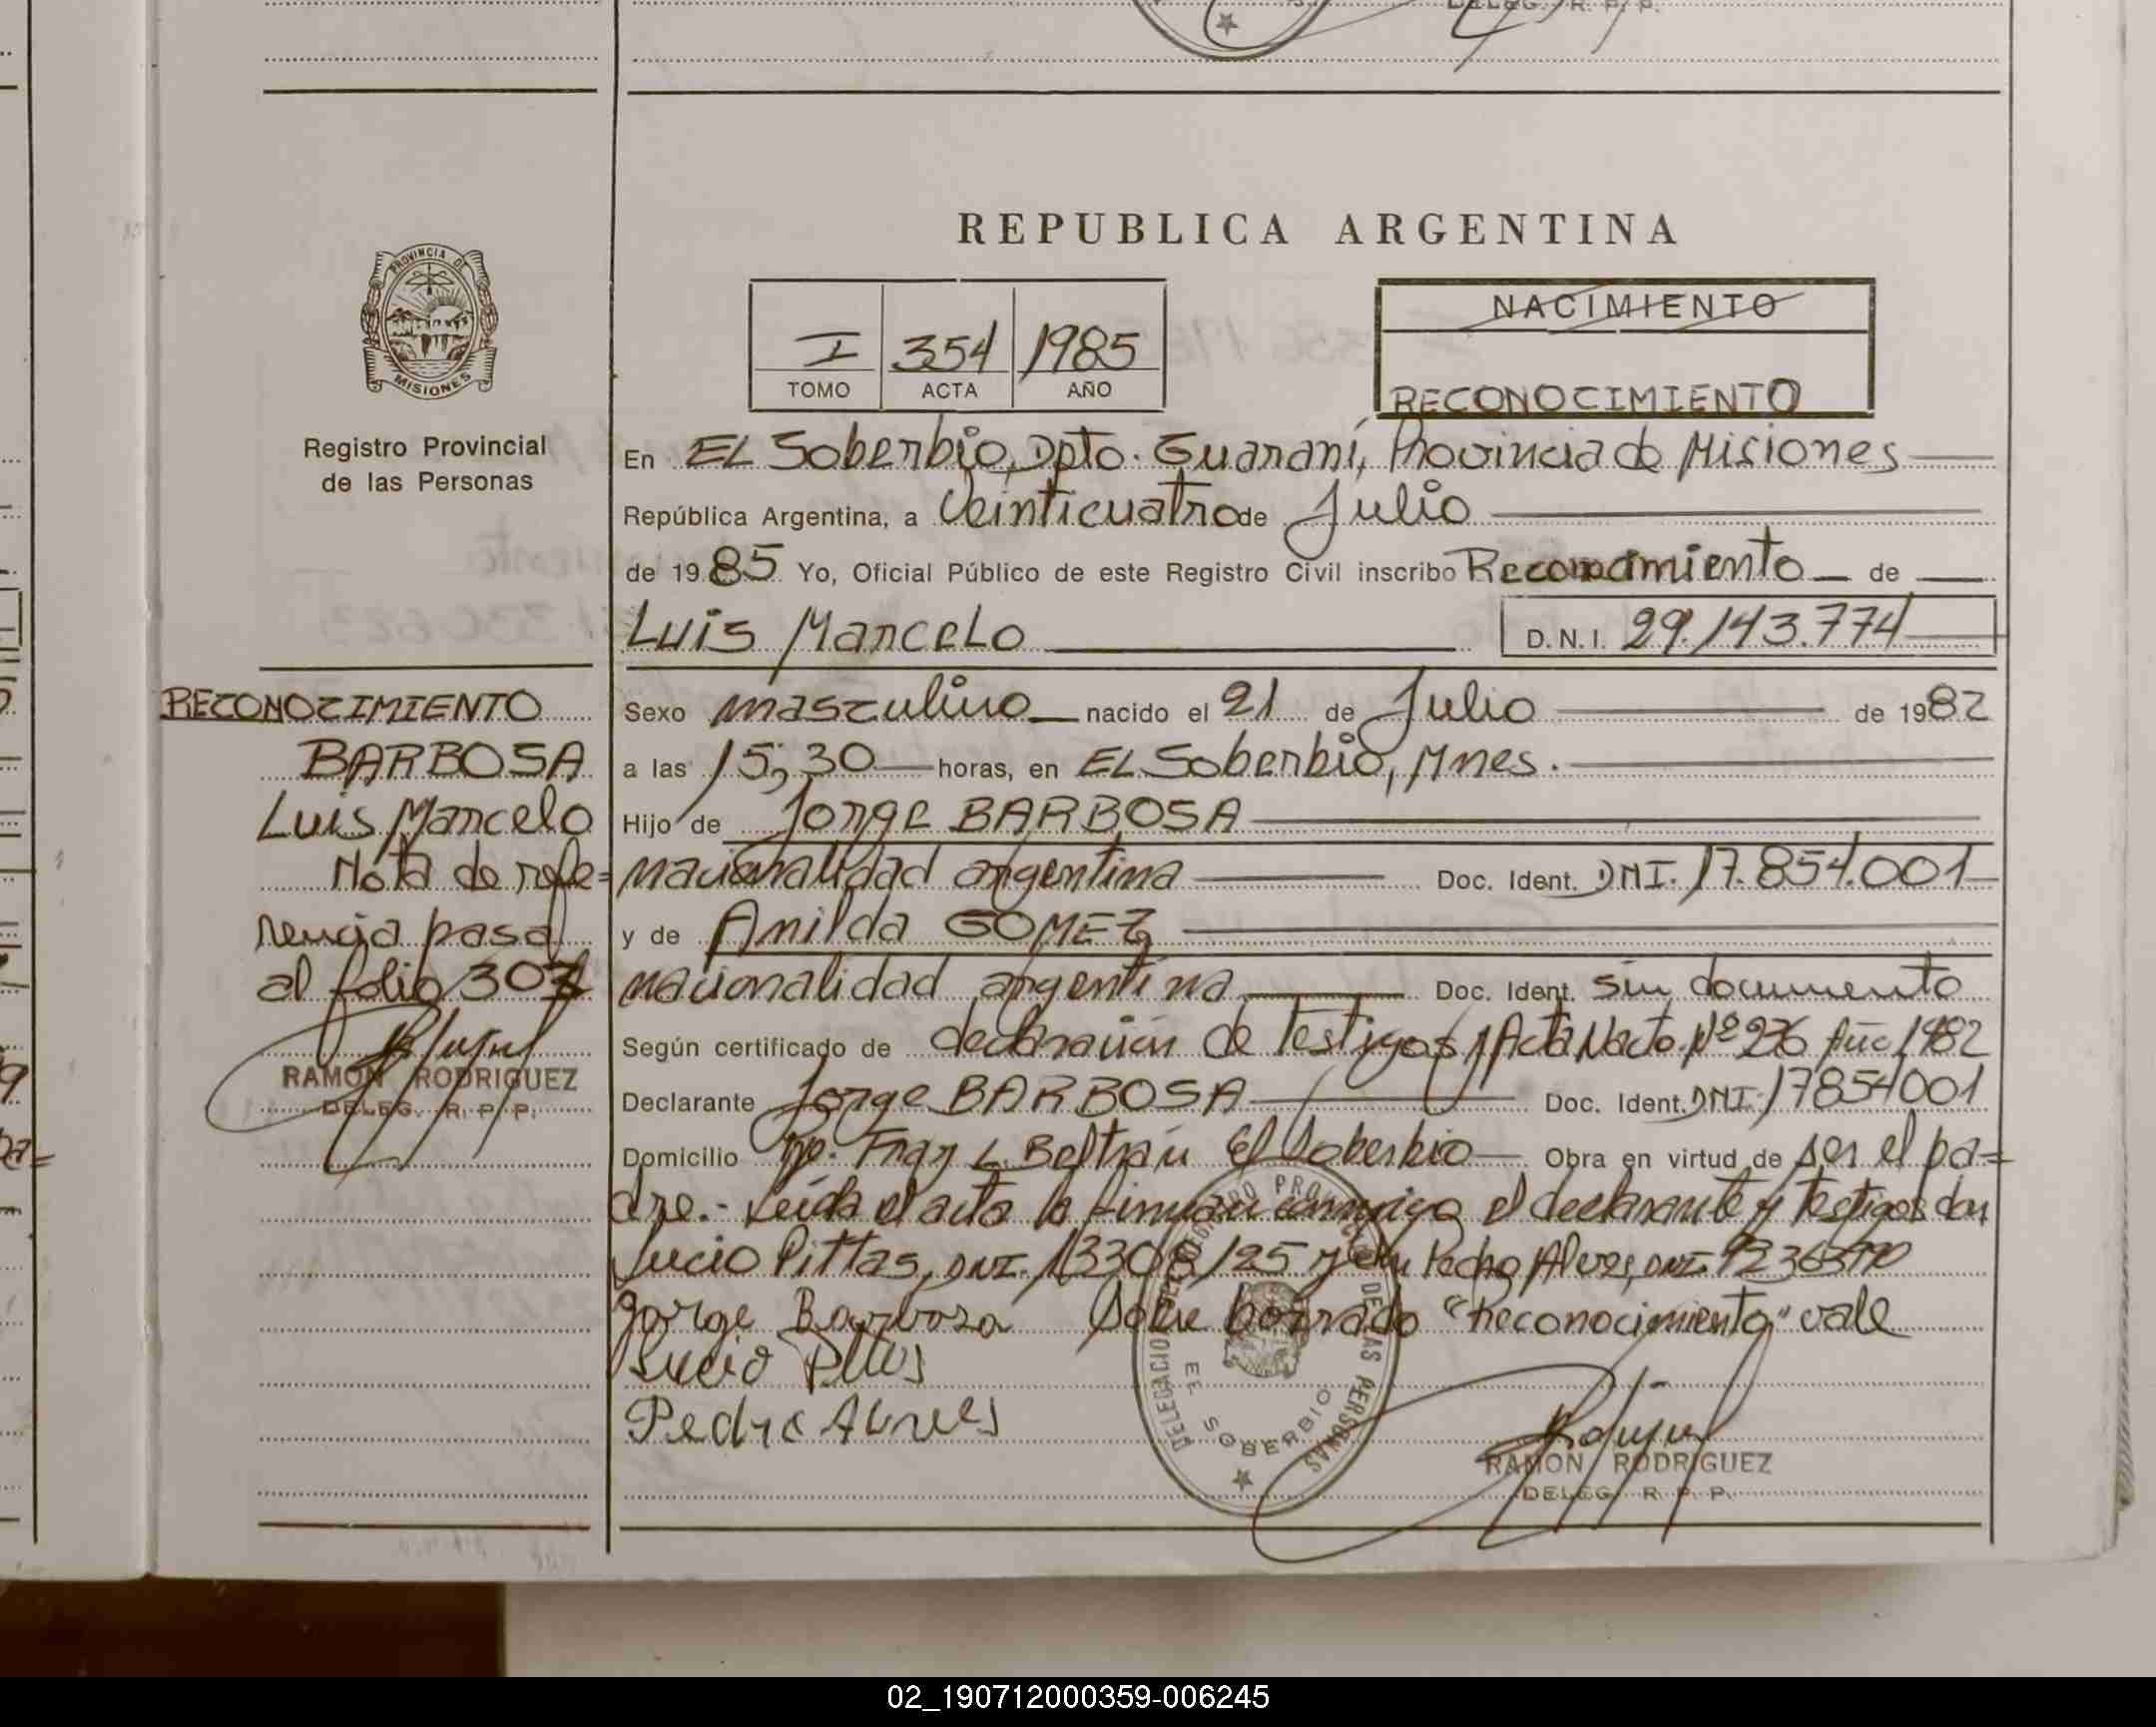 REPUBLICA ARGENTINA
PROVINCIA DE
MISIONES
Registro Provincial
de las Personas
I 354 1985
TOMO ACTA AÑO
NACIMIENTO
RECONOCIMIENTO
En EL Soberbio, Dpto. Guaraní, Provincia de Misiones
República Argentina, a Veinticuatro de Julio
de 1985 Yo, Oficial Público de este Registro Civil inscribo Reconocimiento de
Luis Marcelo D.N.I. 29.143.774
RECONOCIMIENTO
BARBOSA
Luis Marcelo
Nota de refe=
rencia pasa
al folio 307
RAMON RODRIGUEZ
DELEG. R. P. P.
Sexo masculino nacido el 21 de Julio de 1982
a las 15,30 horas, en EL Soberbio, Mnes.
Hijo de Jorge BARBOSA
nacionalidad argentina Doc. Ident. DNI. 17.854.001
y de Anilda GOMEZ
nacionalidad argentina Doc. Ident. sin documento
Según certificado de declaración de Testigos y Acta Nacto. Nº 276 Año 1982
Declarante Jorge BARBOSA Doc. Ident. DNI. 17854001
Domicilio Fray L. Beltrán El Soberbio Obra en virtud de ser el pa=
dre.- Leída el acta la firman conmigo el declarante y testigos don
Lucio Pittas, DNI. 13308125 y don Pedro Alves, DNI.
Jorge Barbosa Sobre borrado "Reconocimiento" vale
Lucio Pittas
Pedro Alves
DELEGACION REGISTRO PROVINCIAL DE LAS PERSONAS
EL SOBERBIO
RAMON RODRIGUEZ
DELEG. R. P. P.
02_190712000359-006245